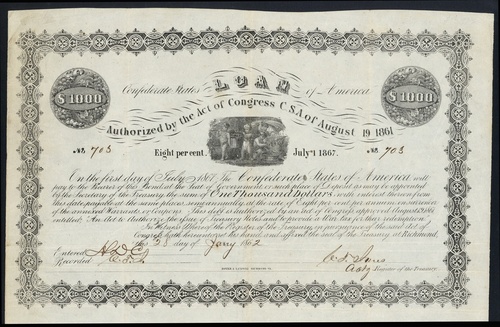 LOAN
Confederate States of America
$1000 $1000
Authorized by the Act of Congress C.S.A of August 19 1861
No 703 No 703
Eight per cent. July 1 1867.
On the first day of July 1867 The Confederate States of America will
pay to the Bearer of this Bond at the Seat of Government or such place of Deposit as may be appointed
by the Secretary of the Treasury the sum of One Thousand Dollars with interest thereon from
this date payable at the same places semi-annually at the rate of Eight per cent per annum on surrender
of the annexed Warrants or Coupons This debt is authorized by an act of Congress approved August 19 1861
entitled An Act to Authorize the Issue of Treasury Notes and to provide a War Tax for their redemption
In Witness Whereof the Register of the Treasury in pursuance of the said Act of
Congress hath hereunto set his hand and affixed the seal of the Treasury at Richmond
this 28 day of Jany 1862
Entered
Recorded
Register of the Treasury